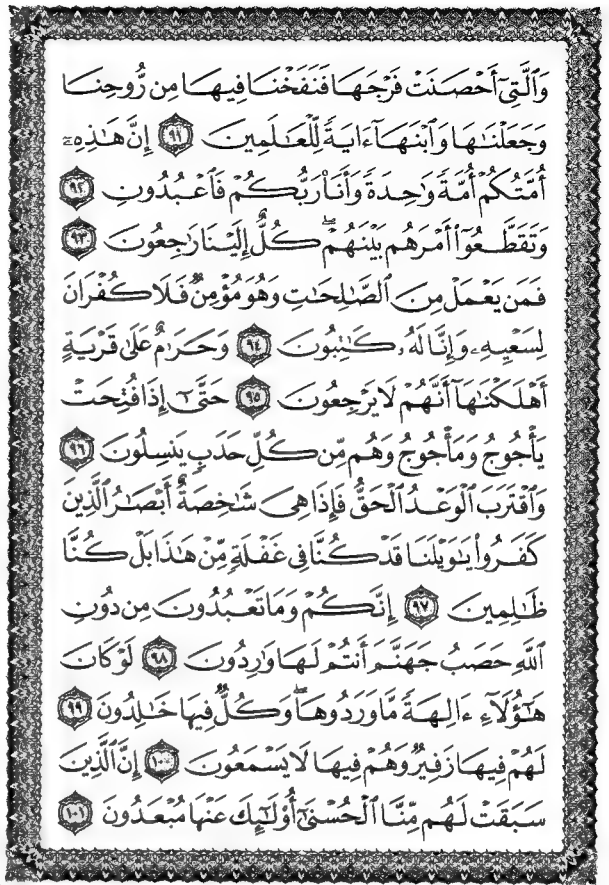 وَٱلَّتِىٓ أَحْصَنَتْ فَرْجَهَا فَنَفَخْنَا فِيهَا مِن رُّوحِنَا
وَجَعَلْنَٰهَا وَٱبْنَهَآ ءَايَةً لِّلْعَٰلَمِينَ ٩١ إِنَّ هَٰذِهِۦٓ
أُمَّتُكُمْ أُمَّةً وَٰحِدَةً وَأَنَا۠ رَبُّكُمْ فَٱعْبُدُونِ ٩٢
وَتَقَطَّعُوٓا۟ أَمْرَهُم بَيْنَهُمْ ۖ كُلٌّ إِلَيْنَا رَٰجِعُونَ ٩٣
فَمَن يَعْمَلْ مِنَ ٱلصَّٰلِحَٰتِ وَهُوَ مُؤْمِنٌ فَلَا كُفْرَانَ
لِسَعْيِهِۦ وَإِنَّا لَهُۥ كَٰتِبُونَ ٩٤ وَحَرَٰمٌ عَلَىٰ قَرْيَةٍ
أَهْلَكْنَٰهَآ أَنَّهُمْ لَا يَرْجِعُونَ ٩٥ حَتَّىٰٓ إِذَا فُتِحَتْ
يَأْجُوجُ وَمَأْجُوجُ وَهُم مِّن كُلِّ حَدَبٍ يَنسِلُونَ ٩٦
وَٱقْتَرَبَ ٱلْوَعْدُ ٱلْحَقُّ فَإِذَا هِىَ شَٰخِصَةٌ أَبْصَٰرُ ٱلَّذِينَ
كَفَرُوا۟ يَٰوَيْلَنَا قَدْ كُنَّا فِى غَفْلَةٍ مِّنْ هَٰذَا بَلْ كُنَّا
ظَٰلِمِينَ ٩٧ إِنَّكُمْ وَمَا تَعْبُدُونَ مِن دُونِ
ٱللَّهِ حَصَبُ جَهَنَّمَ أَنتُمْ لَهَا وَٰرِدُونَ ٩٨ لَوْ كَانَ
هَٰٓؤُلَآءِ ءَالِهَةً مَّا وَرَدُوهَا ۖ وَكُلٌّ فِيهَا خَٰلِدُونَ ٩٩
لَهُمْ فِيهَا زَفِيرٌ وَهُمْ فِيهَا لَا يَسْمَعُونَ ١٠٠ إِنَّ ٱلَّذِينَ
سَبَقَتْ لَهُم مِّنَّا ٱلْحُسْنَىٰٓ أُو۟لَٰٓئِكَ عَنْهَا مُبْعَدُونَ ١٠١